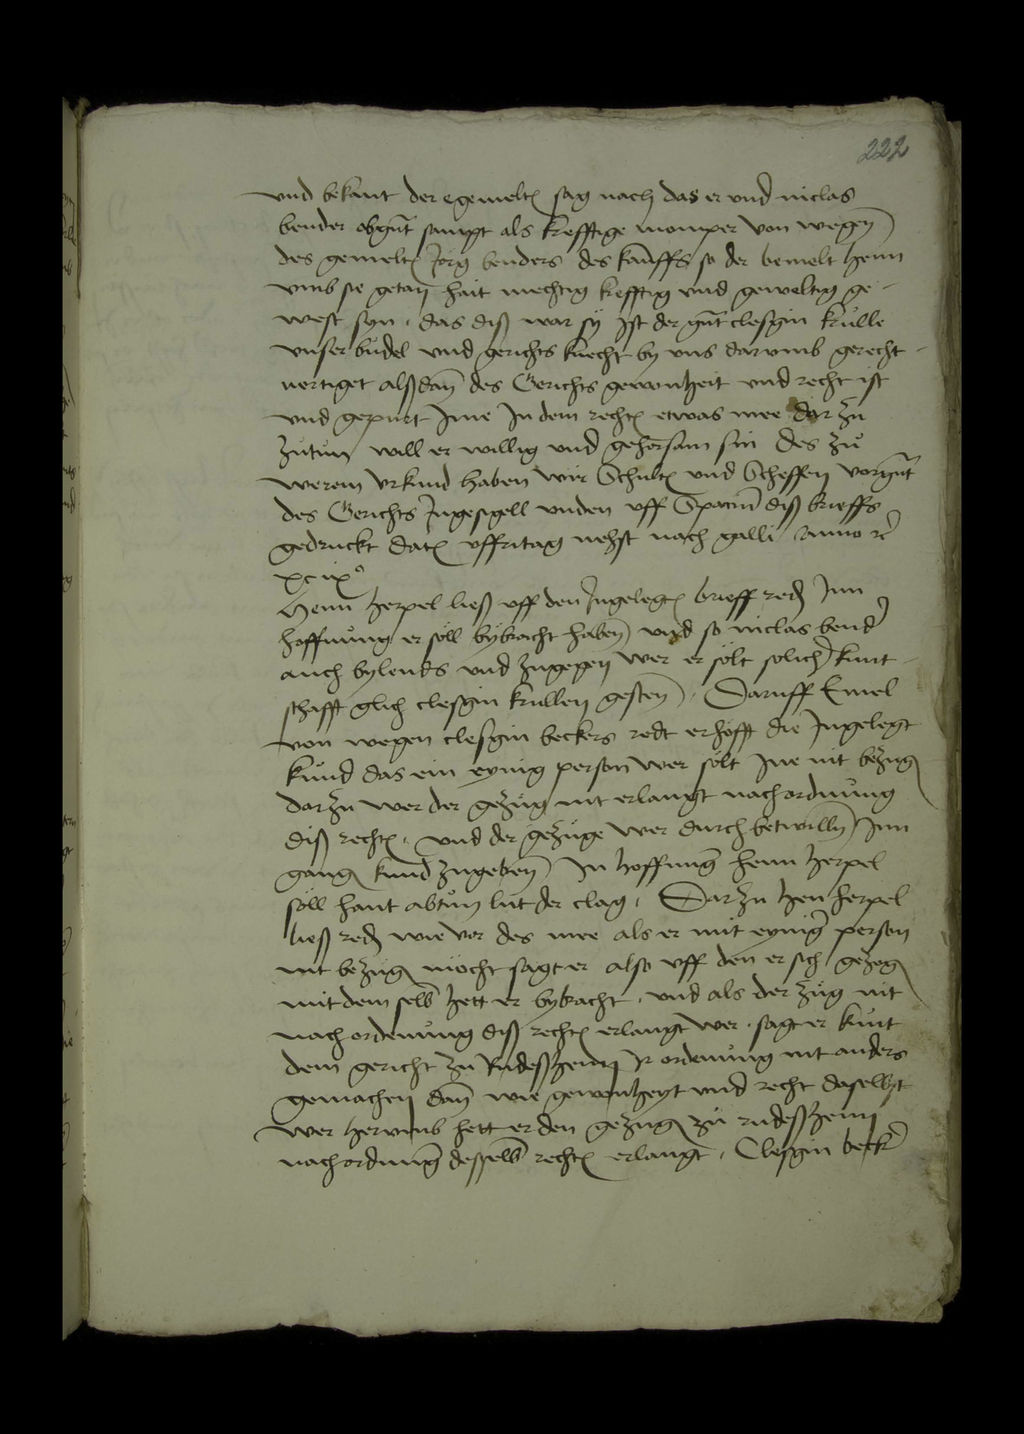 222
und bekant der egemelt sag nach das er und niclas
bender obgnt sampt als krefftige momper von wegen
des gemelt Jorg benders des kauffs so der bemelt henn
umb sie getan hait mechtig krefftig und geweltig ge-
west syn. das diß war sy Ist der gnt clesgin krulle
unser budel und gerichts knecht by uns darumb gerecht-
vertiget alßdan des Gerichts gewonheit und recht ist
und gepurt Ime In dem recht etwas mee dar zu
zutun will er willig und gehorsam sin des zu
warem urkund haben wir Schult und Scheffen vorgnt
des Gerichts Ingesigell unden uff Spacium diß brieffs
gedruckt dat uffritag nehst nach galli Anno rc
xcix°
Henn herpel ließ uff den Ingelegt brieff red Inn
hoffnung er söll bybracht haben und so niclas bend
auch bylends und zugegen wer er sölt solich kunt-
schafft glich clesgin krullen gesten. Daruff Emel
von wegen clesgin beckers redt er hofft die Ingelegt
kund das ein eynig person wer sölt Ine nit bezug
darzu wer der gezug nit erlangt nach ordnung
diß recht. und der gezuge wer durch betwilln Inn
gang kund zugeben In hoffnung henn herpel
söll hant abtun lut der clag. Dar zu hen herpel
ließ red wie vor des mee als er mit eynig person
nit bezug mocht sagt er also uff den er sich gezog
mit dem selb hett er bybracht. und als der zug nit
nach ordenung diß recht erlangt wer. sagt er kunt
dem gericht zu Rudeßheim Ir ordenung nit anders
gemachen dan wie gewonheyt und recht daselbst
wer herumb hett er den gezug zu rudeßheim
nach ordnung desselb recht erlangt. Clesgin beck